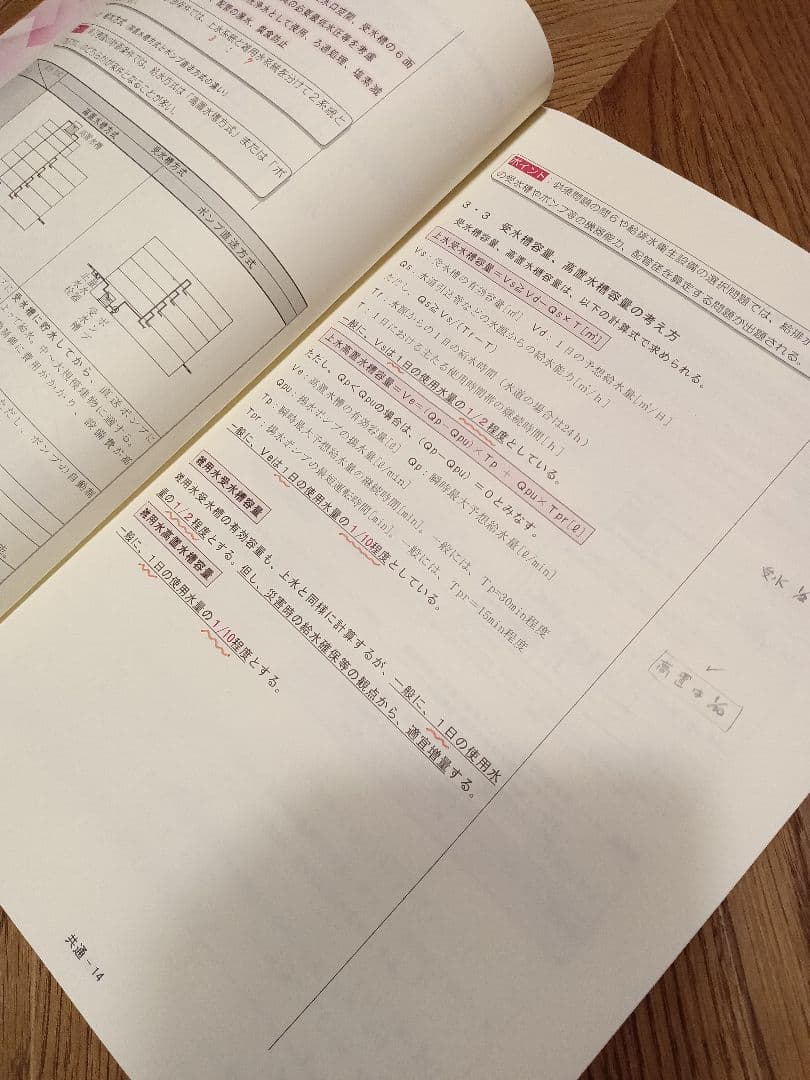 水口空間、受水槽の6面
の必要最低水圧等を考慮
浄水として使用、ろ過処理、塩素滅
配管の洗浄、誤飲防止
では、上水系統と雑用水系統を分けて2系統と
3 : 7
給水方式は「高置水槽方式」または「ポ
となることが多い。
高置水槽方式
受水槽方式
ポンプ直送方式
高置水槽
受水槽
ポンプ
止水栓
量水器
受水槽に貯水してから、直送ポンプに
より給水。中・大規模建物に適する。
設備費が高
ただし、ポンプの自動制
御に費用がかかり、
ポイント：必須問題の問5や給排水衛生設備の選択問題では、給排水
の受水槽やポンプ等の機器能力、配管径を算定する問題が出題される。
3・3 受水槽容量、高置水槽容量の考え方
受水槽容量、高置水槽容量は、以下の計算式で求められる。
上水受水槽容量＝Vs≧Vd－Qs×T[㎥]
Vs：受水槽の有効容量[㎥] Vd：1日の予想給水量[㎥/日]
Qs：水道引込管などの水源からの給水能力[㎥/h]
ただし、Qs≧Vs/(Tr－T)
Tr：水源からの1日の給水時間（水道の場合は24h）
T：1日における主たる使用時間帯の継続時間[h]
一般に、Vsは1日の使用水量の1/2程度としている。
上水高置水槽容量＝Ve＝(Qp－Qpu)×Tp＋Qpu×Tpr[ℓ]
ただし、Qp＜Qpuの場合は、(Qp－Qpu)＝0とみなす。
Ve：高置水槽の有効容量[ℓ] Qp：瞬時最大予想給水量[ℓ/min]
Qpu：揚水ポンプの揚水量[ℓ/min]
Tp：瞬時最大予想給水量の継続時間[min]。一般には、Tp=30min程度
Tpr：揚水ポンプの最短運転時間[min]。一般には、Tpr=15min程度
一般に、Veは1日の使用水量の1/10程度としている。
雑用水受水槽容量
雑用水受水槽の有効容量も、上水と同様に計算するが、一般に、1日の使用水
量の1/2程度とする。但し、災害時の給水確保等の観点から、適宜増量する。
雑用水高置水槽容量
一般に、1日の使用水量の1/10程度とする。
受水 1/2
高置は 1/10
共通－14